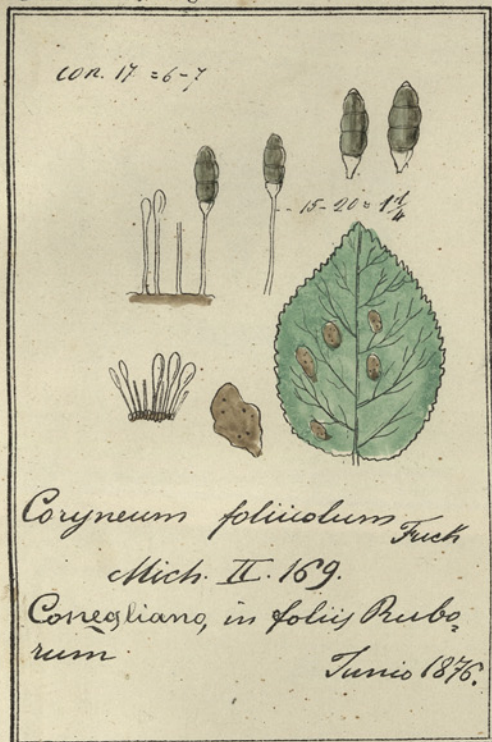 con. 17 = 6-7
15-20 = 1 1/4
Coryneum foliicolum Fuck
Mich. II. 169.
Conegliano, in foliis Rubo-
rum
Junio 1876.